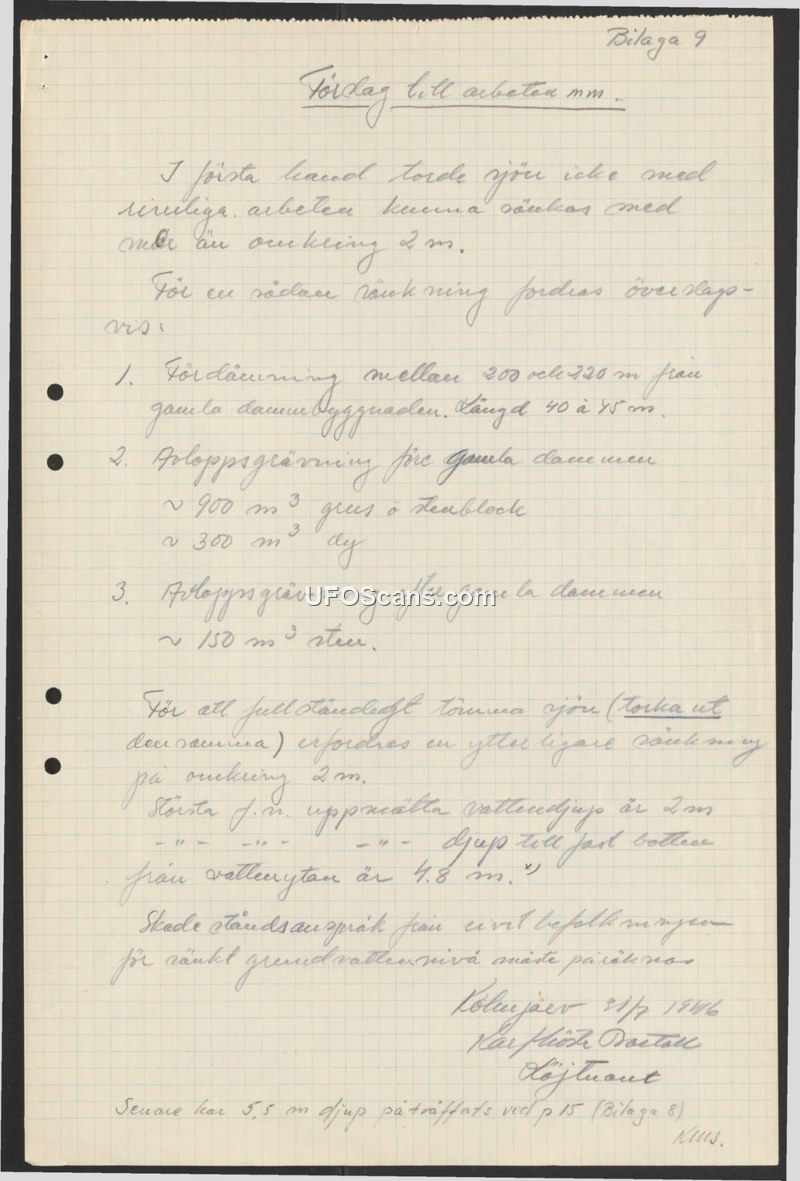 Bilaga 9
Förslag till arbeten mm.
I första hand torde sjön icke med
rimliga arbeten kunna sänkas med
mer än omkring 2 m.
För en sådan sänkning fordras överslags-
vis:
1. Fördämning mellan 200 och 220 m från
gamla dammbyggnaden. Längd 40 à 45 m.
2. Avloppsgrävning före gamla dammen
~ 900 m³ grus o stenblock
~ 300 m³ dy
3. Avloppsgrävning efter gamla dammen
UFOScans.com
~ 150 m³ sten.
För att fullständigt tömma sjön (torka ut
densamma) erfordras en ytterligare sänkning
på omkring 2 m.
Största f.n. uppmätta vattendjup är 2 m
-"- -"- -"- djup till fast botten
från vattenytan är 4.8 m. x)
Skadeståndsanspråk från civilbefolkningen
för sänkt grundvattennivå måste påräknas
Kölmjärv 31/7 1946
Löjtnant
Senare har 5,5 m djup påträffats vid p 15 (Bilaga 8)